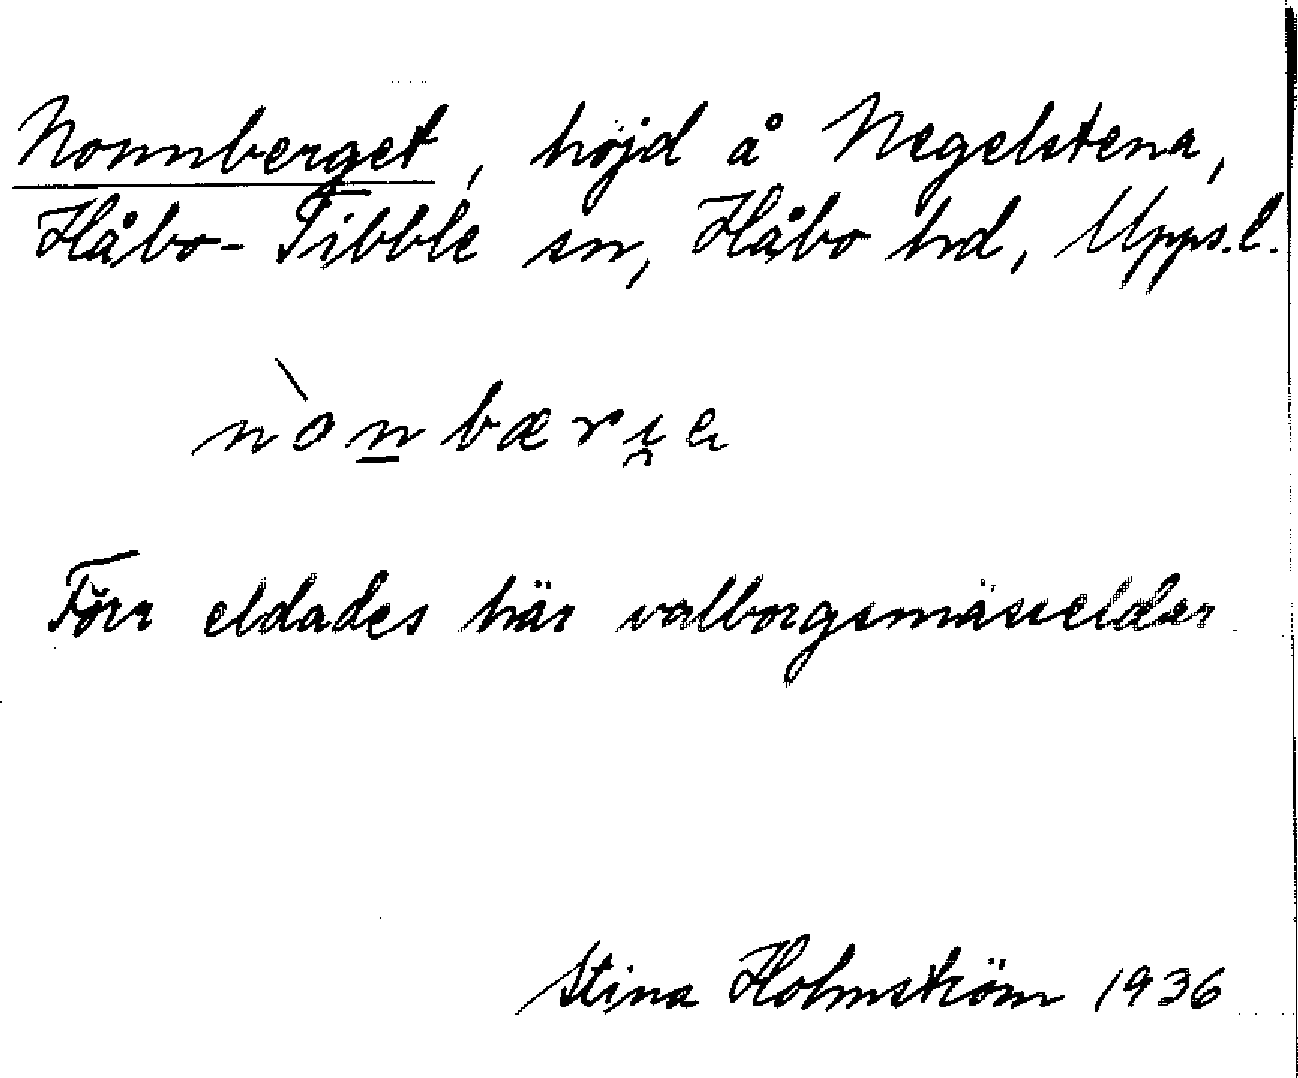 Nonnberget, höjd å Negelstena,
Håbo-Tibble sn, Håbo hd, Upps.l.
Förr eldades här valborgsmässeldar
Stina Holmström 1936